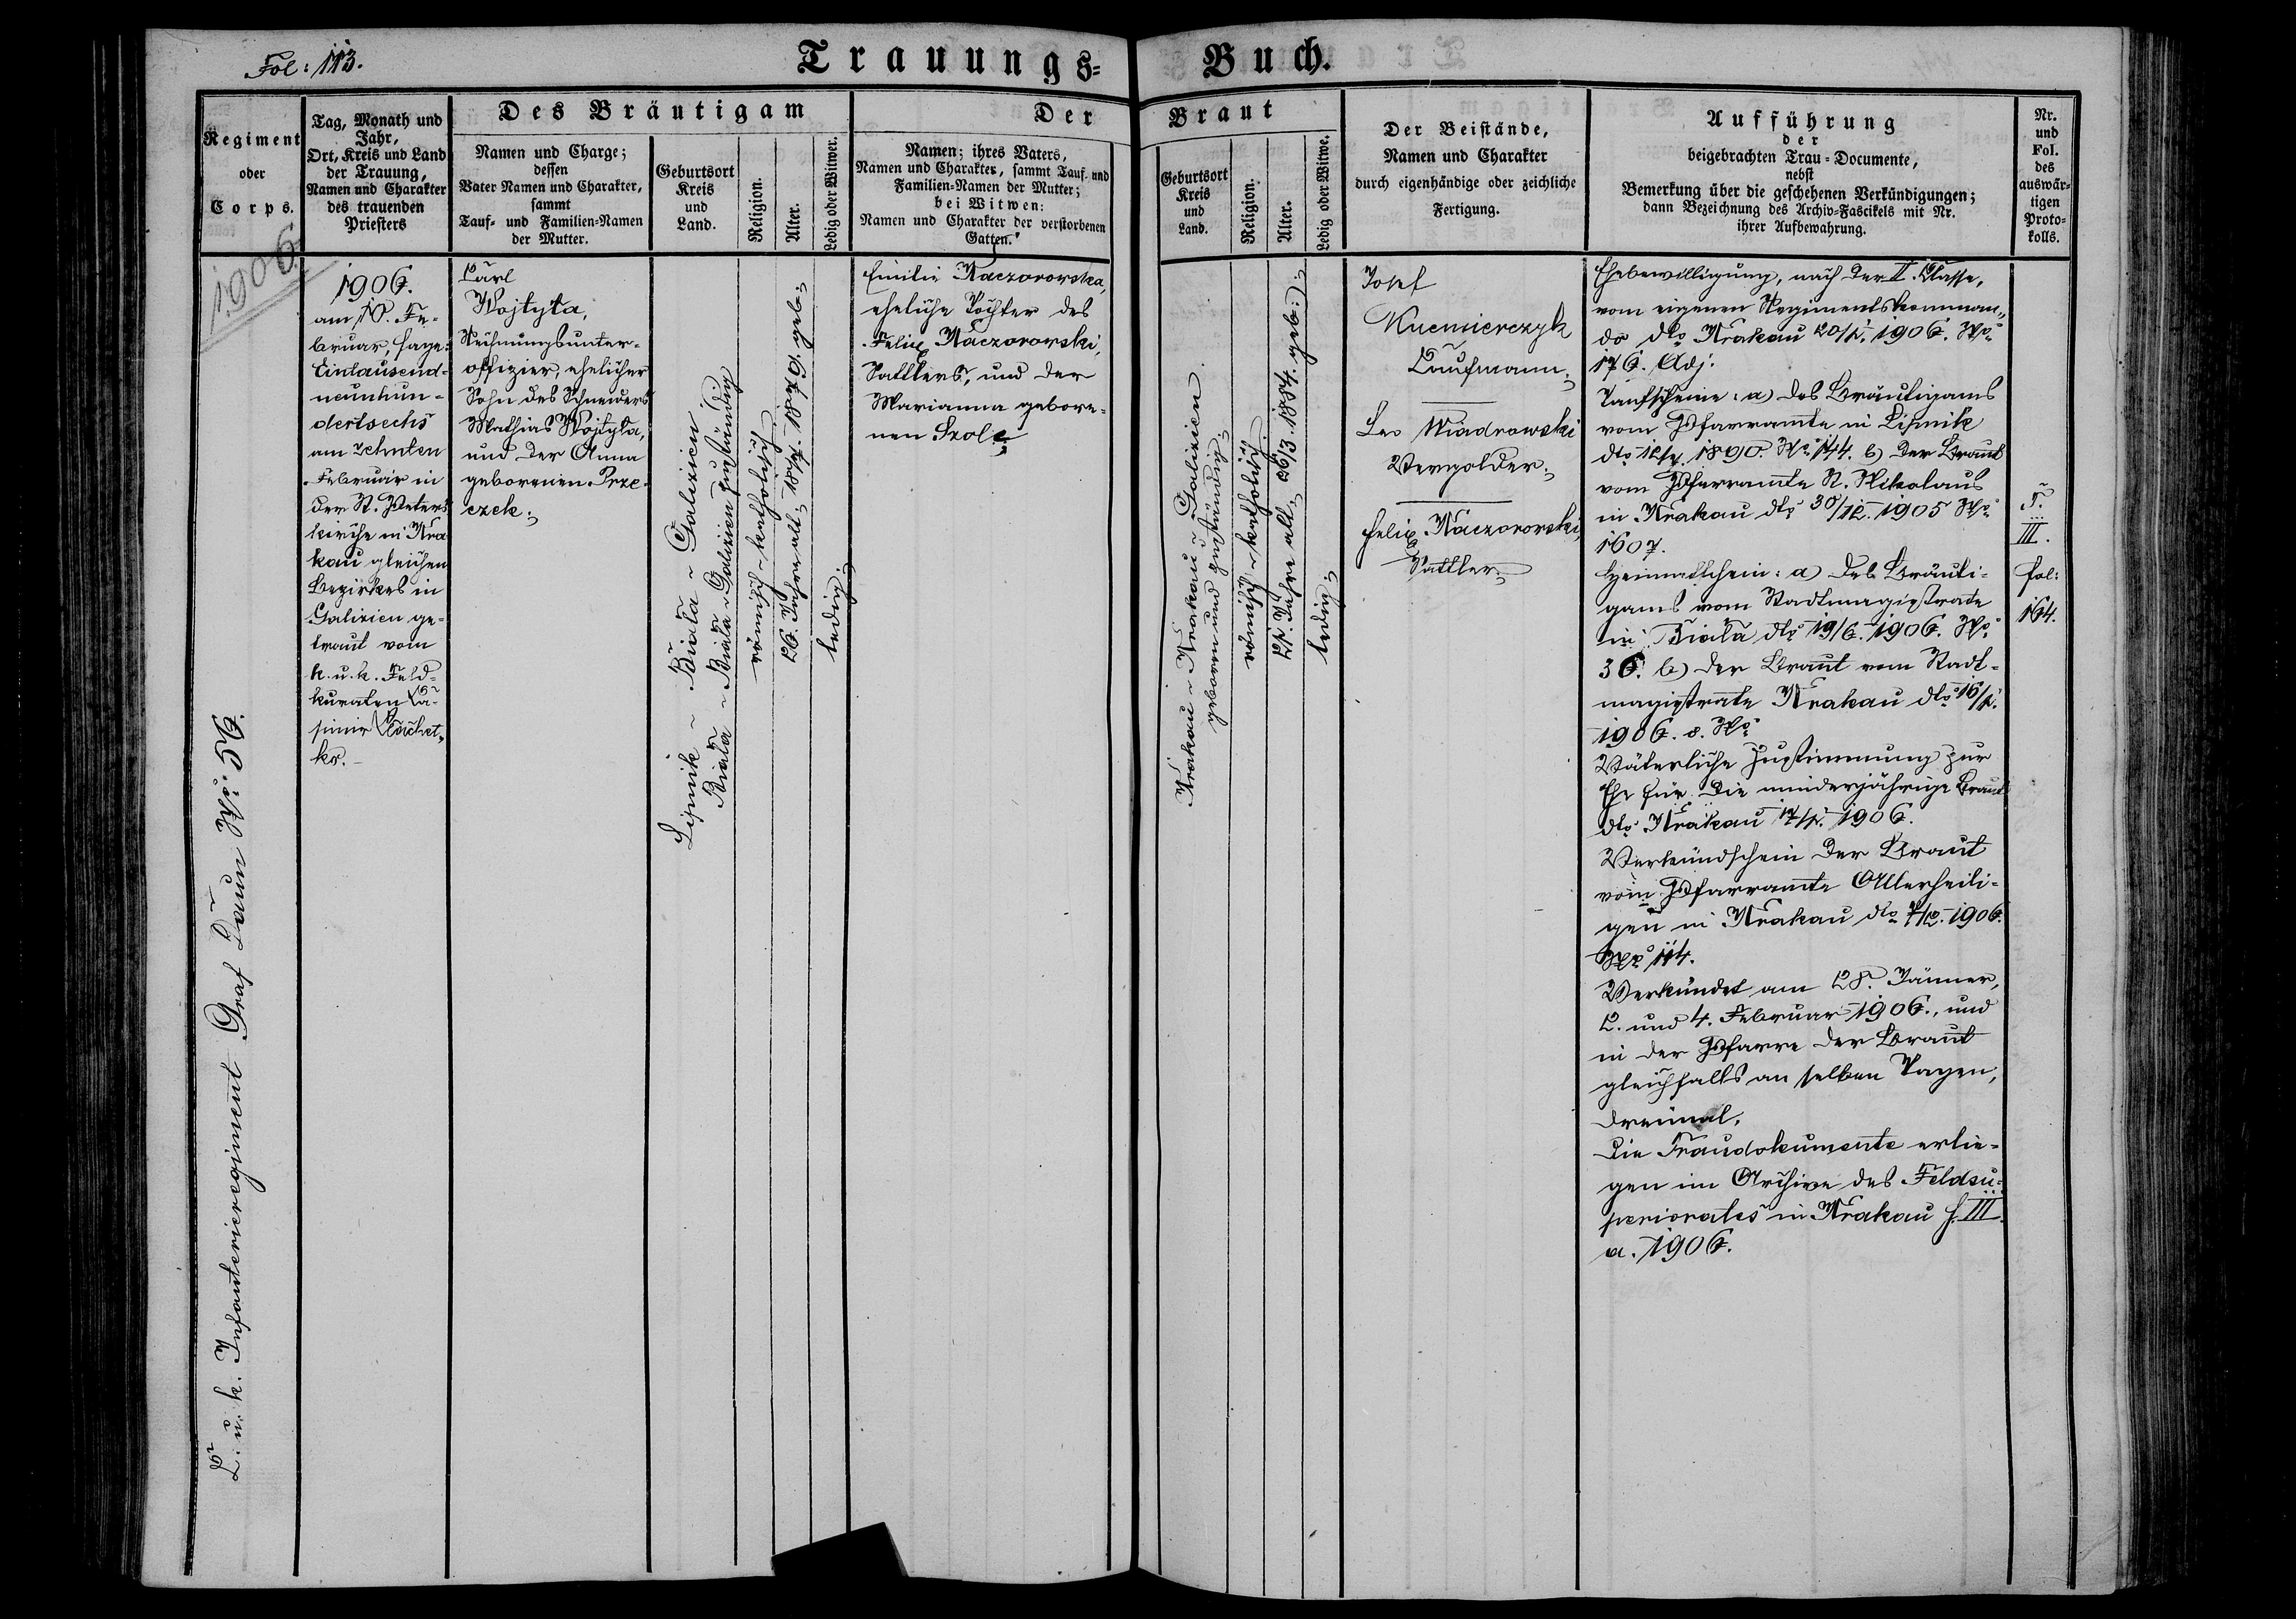 Fol: 113.
Trauungs-Buch.
Regiment
oder
Corps.
Tag, Monath und
Jahr,
Ort, Kreis und Land
der Trauung,
Namen und Charakter
des trauenden
Priesters
Des Bräutigam
Namen und Charge;
dessen
Vater Namen und Charakter,
sammt
Tauf- und Familien-Namen
der Mutter.
Geburtsort
Kreis
und
Land.
Religion.
Alter.
Ledig oder Witwer.
Der Braut
Namen; ihres Vaters,
Namen und Charakter, sammt Tauf- und
Familien-Namen der Mutter;
bei Witwen:
Namen und Charakter der verstorbenen
Gatten.
Geburtsort
Kreis
und
Land.
Religion.
Alter.
Ledig oder Witwe.
Der Beistände,
Namen und Charakter
durch eigenhändige oder zeichliche
Fertigung.
Aufführung
der
beigebrachten Trau-Documente,
nebst
Bemerkung über die geschehenen Verkündigungen;
dann Bezeichnung des Archiv-Fascikels mit Nr.
ihrer Aufbewahrung.
Nr.
und
Fol.
des
auswär-
tigen
Proto-
kolls.
1906.
K. u. k. Infanterieregiment Graf Daun No 56.
1906.
am 10. Fe-
bruar, sage:
Eintausend-
neunhun-
dertsechs
am zehnten
Februar in
der St. Peters
kirche in Kra
kau gleichen
Bezirkes in
Galizien ge-
traut vom
k. u. k. Feld-
kuraten Ka-
simir
ko.-
Karl
Wojtyła,
Rechnungsunter-
offizier, ehelicher
Sohn des Schneiders
Mathias Wojtyła,
und der Anna
geborenen Prze-
czek;
Lipnik - Biała - Galizien
Biała - Biała - Galizien zuständig;
römisch-katholisch;
26. Jahre alt; 18/7. 1879. geb:;
ledig;
Emilie Kaczorowska,
eheliche Tochter des
Felix Kaczorowski,
Sattlers, und der
Marianna gebore-
nen Szolc;
Krakau - Krakau - Galizien
geboren und zuständig;
römisch-katholisch;
21. Jahre alt; 26/3. 1884. geb:;
ledig;
Josef
Kuśmierczyk
Kaufmann;
Leo Wiadrowski
Vergolder;
Felix Kaczorowski,
Sattler;
Ehebewilligung, nach der II. Classe,
vom eigenen Regimentskomman-
do dto Krakau 20/1. 1906. No
176. Adj:
Taufscheine: a) des Bräutigams
vom Pfarramte in Lipnik
dto 1890. No 144. b) der Braut
vom Pfarramte St. Nikolaus
in Krakau dto 30/12. 1905 No
1607.
Heimatschein: a) des Bräuti-
gams vom Stadtmagistrate
in Biała dto 1906. No
36. b) der Braut vom Stadt-
magistrate Krakau dto 16/1.
1906. o. No
Väterliche Zustimmung zur
Ehe für die minderjährige Braut
dto Krakau 17/1. 1906.
Verkündschein der Braut
vom Pfarramte Allerheili-
gen in Krakau dto 7/2. 1906.
No 114.
Verkündet am 28. Jänner,
2. und 4. Februar 1906., und
in der Pfarre der Braut
gleichfalls an selben Tagen,
dreimal.
Die Traudokumente erlie-
gen im Archive des Feldsu-
periorates in Krakau f. III
a. 1906.
T.
III.
fol:
164.